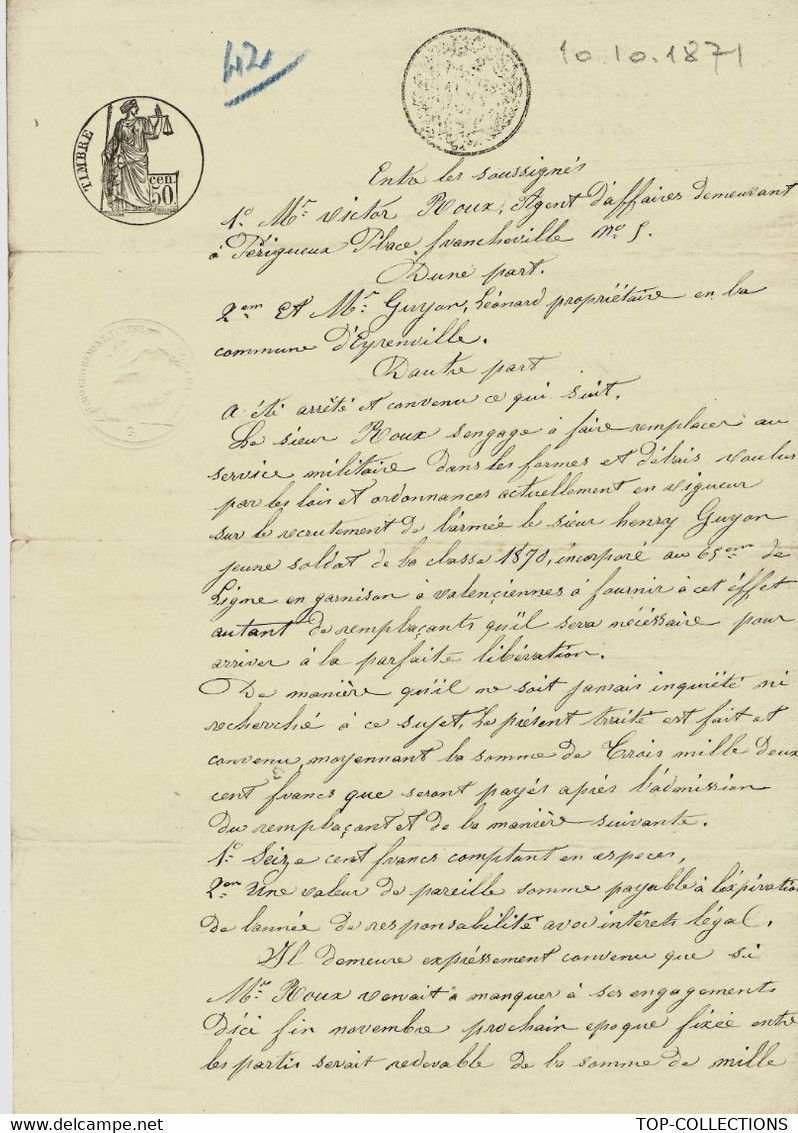 420
10.10.1871
TIMBRE
cen.
50
Entre les soussignés
1º. Mr. Victor Roux, Agent d'affaires demeurant
à Périgueux Place francheville Nº 5.
D'une part.
2em Et Mr. Guyon, Léonard propriétaire en la
commune d'Eyrenville.
D'autre part
A été arrêté et convenu ce qui suit.
Le sieur Roux s'engage à faire remplacer au
service militaire dans les formes et délais voulus
par les lois et ordonnances actuellement en vigueur
sur le recrutement de l'armée le sieur henry Guyon
jeune soldat de la classe 1870, incorporé au 65em de
Ligne en garnison à valençiennes à fournir à cet éffet
autant de remplaçants qu'il sera nécéssaire pour
arriver à la parfaite libération.
De manière qu'il ne soit jamais inquiété ni
recherché à ce sujet, le présent traité est fait et
convenu, moyennant la somme de Trois mille deux
cent francs que seront payés après l'admission
du remplaçant et de la manière suivante.
1º Seize cent francs comptant en espèces,
2em Une valeur de pareille somme payable à l'éxpiration
de l'année de responsabilité avec intérêts légal.
Il demeure expréssement convenu que si
Mr. Roux venait à manquer à ses engagements
D'ici fin novembre prochain epoque fixée entre
les partis serait redevable de la somme de mille
TOP-COLLECTIONS